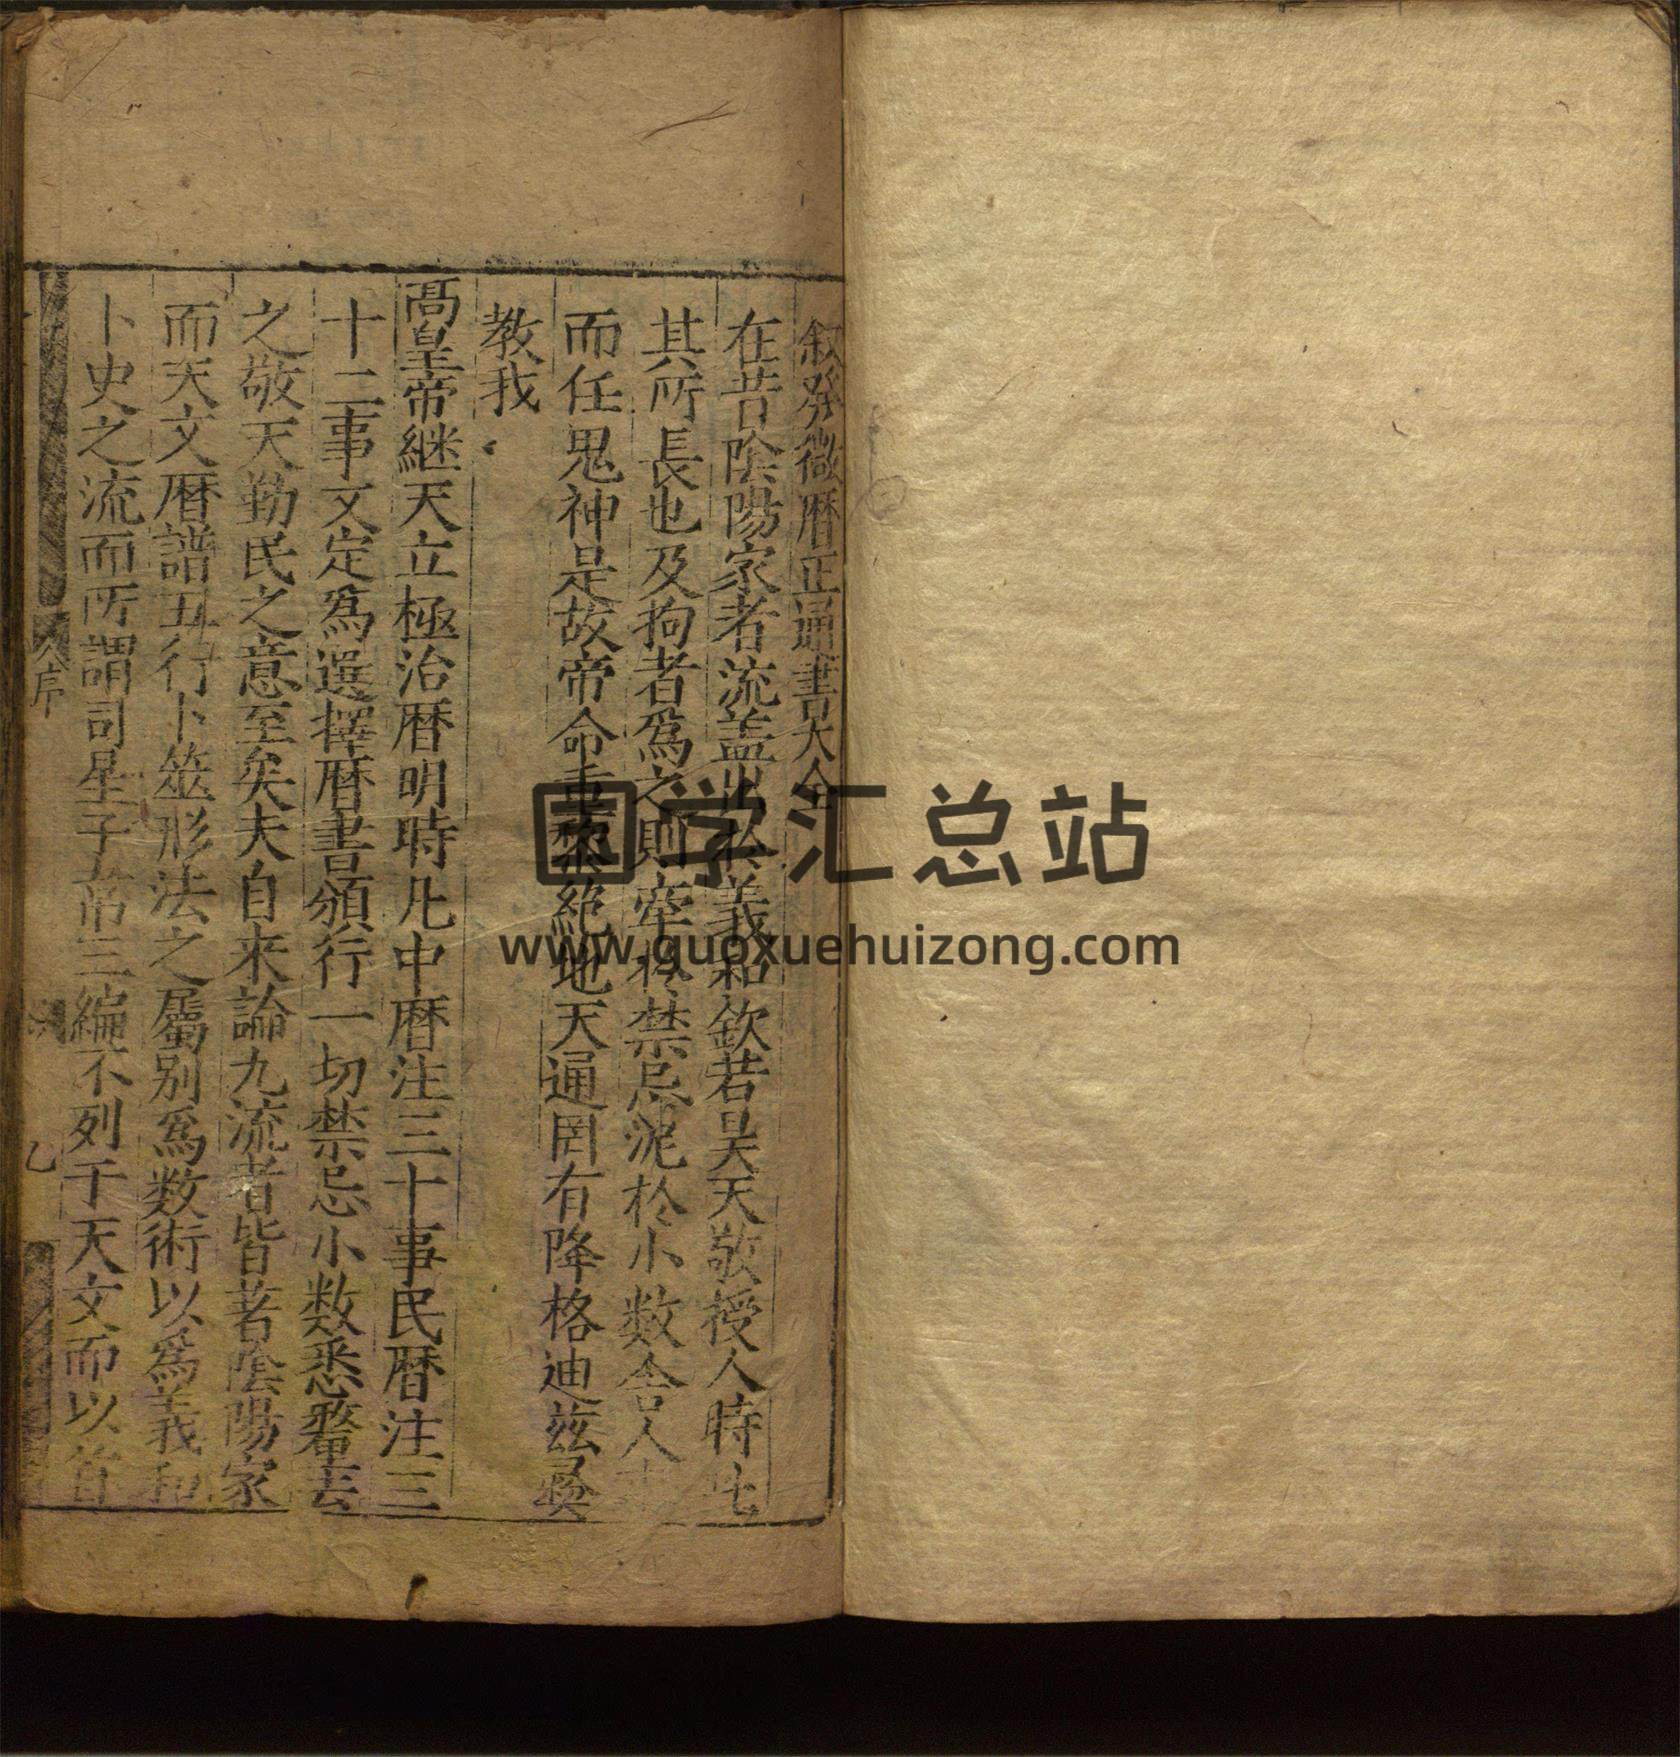 叙發微曆正通書大全
在昔陰陽家者流盖出扵羲和欽若昊天敬授人時此
其所長也及拘者爲之則牽扵禁忌泥扵小数舍人事
而任鬼神是故帝命重黎絶地天通罔有降格迪兹彛
教我
髙皇帝継天立極治曆明時凡中曆注三十事民曆注三
十二事又定爲選擇曆書頒行一切禁忌小数悉釐去
之敬天勤民之意至矣夫自来論九流者皆著陰陽家
而天文曆譜五行卜筮形法之屬别爲数術以爲羲和
卜史之流而所謂司星子韋三編不列于天文而以首
序
乙
国学汇总站
www.guoxuehuizong.com